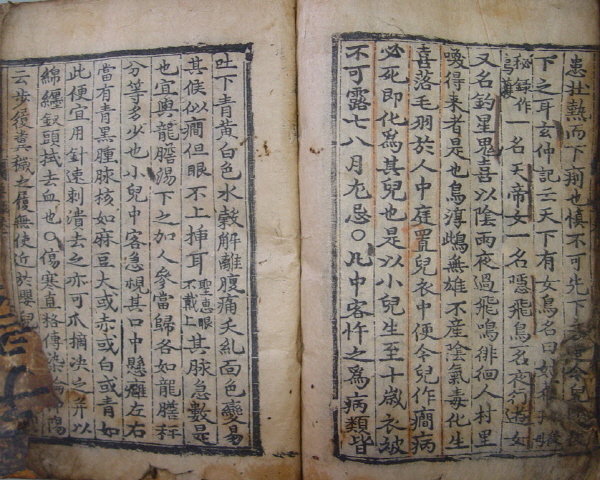 患壯熱而下痢也慎不可先下令兒
下之耳玄仲記云天下有女鳥名曰姑獲
秘錄作烏獲一名天帝女一名隱飛鳥名夜行遊女
又名釣星鬼喜以陰雨夜過飛鳴徘徊人村里
喚得来者是也鳥淳雌無雄不產陰氣毒化生
喜落毛羽於人中庭置兒衣中便令兒作癎病
必死即化爲其兒也是以小兒生至十歲衣被
不可露七八月尤忌〇凡中客忤之爲病類皆
吐下青黃白色水穀解離腹痛夭糺面色變易
其候似癎但眼不上揷耳聖惠眼不戴上其脉急數是
也宜與龍膽湯下之加人參當歸各如龍膽秤
分等多少也小兒中客急視其口中懸癰左右
當有青黑腫脉核如麻豆大或赤或白或青如
此便宜用針速刺潰去之亦可爪摘决之并以
綿纏釵頭拭去血也〇傷寒直格傳染
云步後糞穢之履無使近於嬰兒